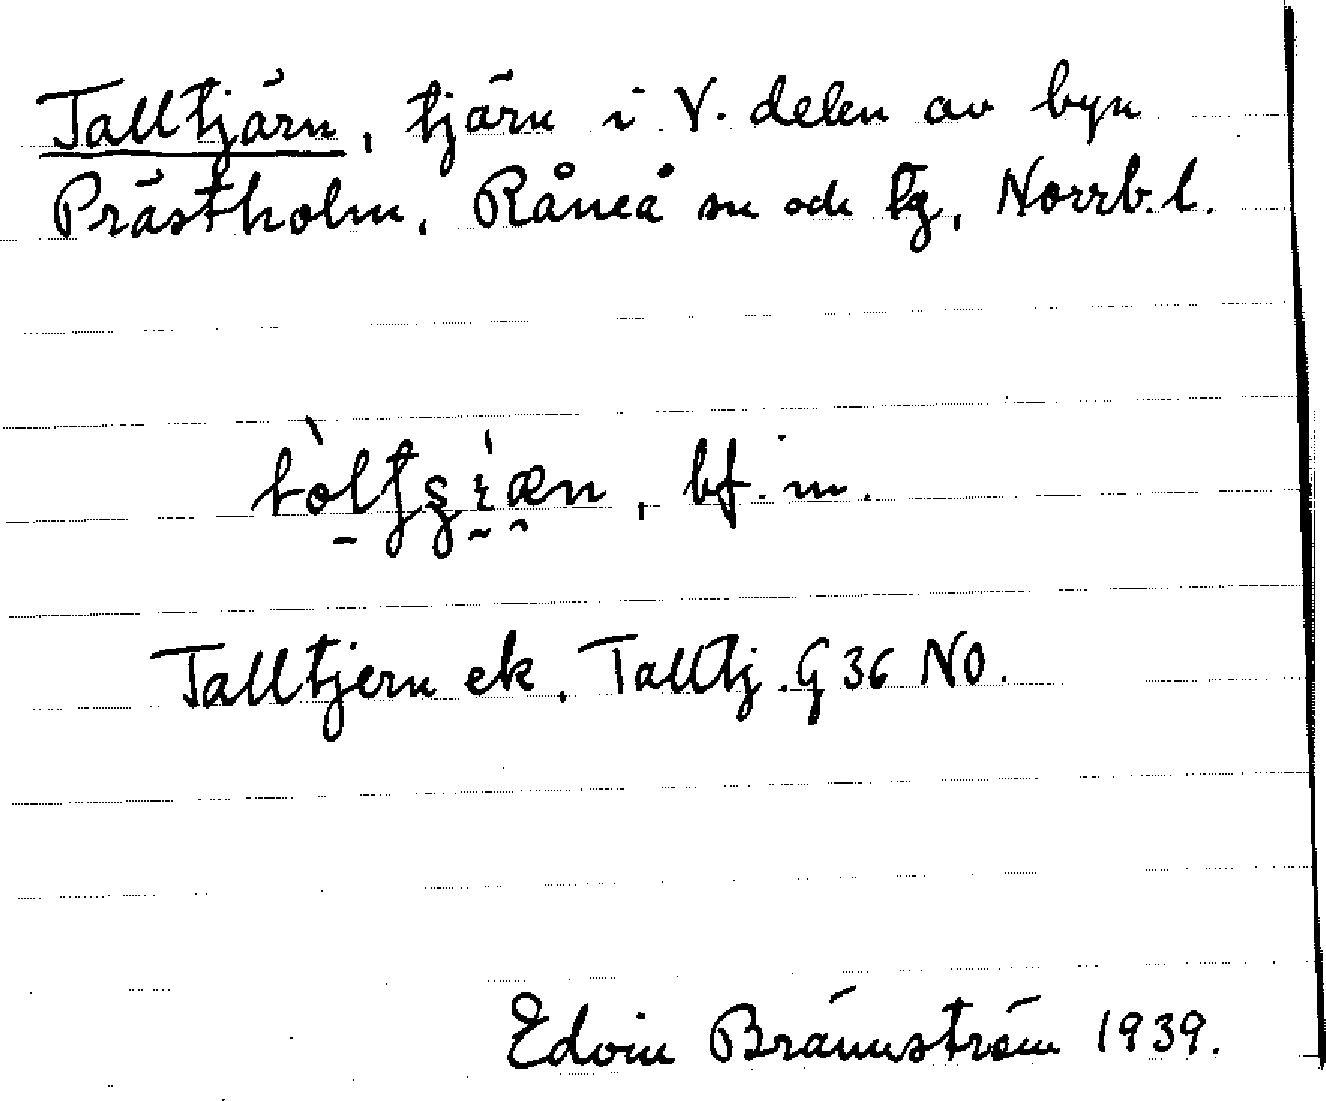 Talltjärn, tjärn i V. delen av byn
Prästholm, Råneå sn och tg, Norrb. l.
bf. m.
Talltjern ek. Talltj. G 36 NO.
Edvin Brännström 1939.